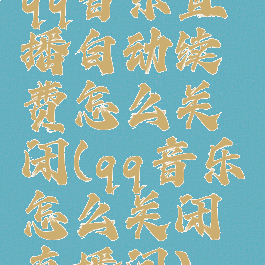 qq音乐直
播自动续
费怎么关
闭(qq音乐
怎么关闭
直播间)